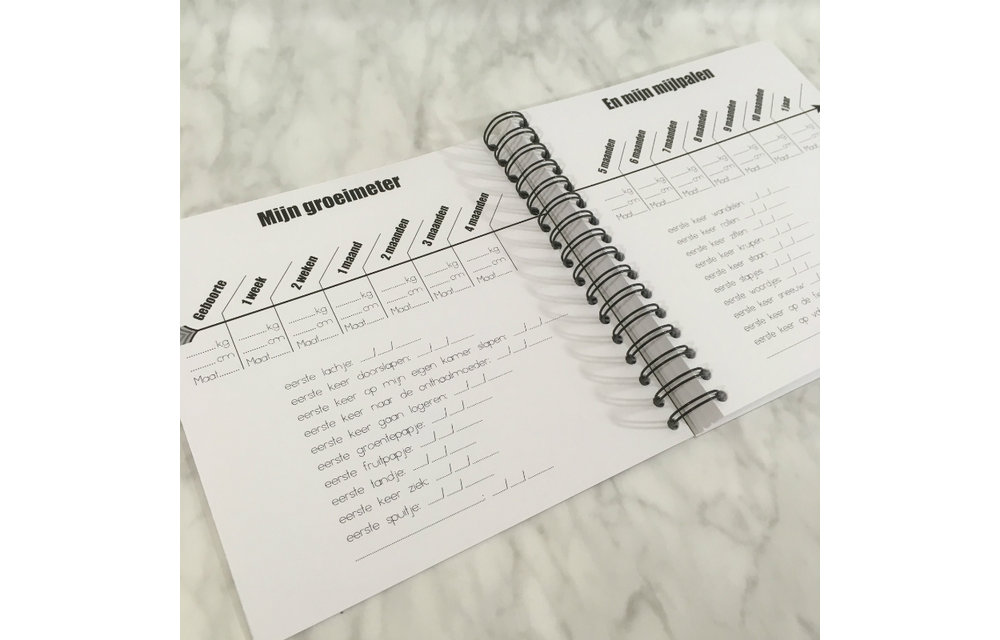 Mijn groeimeter
Geboorte
1 week
2 weken
1 maand
2 maanden
3 maanden
4 maanden
..........kg
..........cm
Maat.......
..........kg
..........cm
Maat.......
..........kg
..........cm
Maat.......
..........kg
..........cm
Maat.......
..........kg
..........cm
Maat.......
..........kg
..........cm
Maat.......
..........kg
..........cm
Maat.......
eerste lachje: __/__/____
eerste keer doorslapen: __/__/____
eerste keer op mijn eigen kamer slapen: __/__/____
eerste keer naar de onthaalmoeder: __/__/____
eerste keer gaan logeren: __/__/____
eerste groentepapje: __/__/____
eerste fruitpapje: __/__/____
eerste tandje: __/__/____
eerste keer ziek: __/__/____
eerste spuitje: __/__/____
: __/__/____
En mijn mijlpalen
5 maanden
6 maanden
7 maanden
8 maanden
9 maanden
10 maanden
1 jaar
..........kg
..........cm
Maat.......
..........kg
..........cm
Maat.......
..........kg
..........cm
Maat.......
..........kg
..........cm
Maat.......
..........kg
..........cm
Maat.......
..........kg
..........cm
Maat.......
eerste keer wandelen: __/__/____
eerste keer rollen: __/__/____
eerste keer zitten: __/__/____
eerste keer kruipen: __/__/____
eerste keer staan: __/__/____
eerste stapjes: __/__/____
eerste woordjes: __/__/____
eerste keer sneeuw: __/__
eerste keer op de
eerste keer op